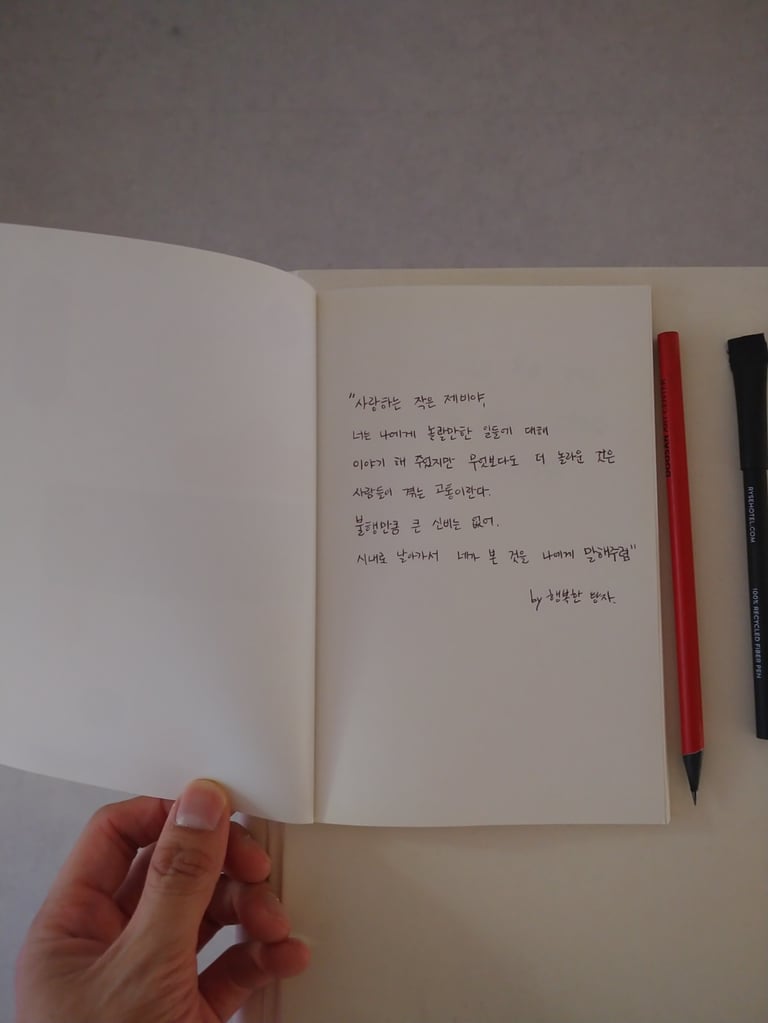 "사랑하는 작은 제비야,
너는 나에게 놀랄만한 일들에 대해
이야기 해 주었지만 무엇보다도 더 놀라운 것은
사람들이 겪는 고통이란다.
불행만큼 큰 신비는 없어.
시내로 날아가서 네가 본 것을 나에게 말해주렴"
by 행복한 왕자.
RYSEHOTEL.COM
100% RECYCLED FIBER PEN